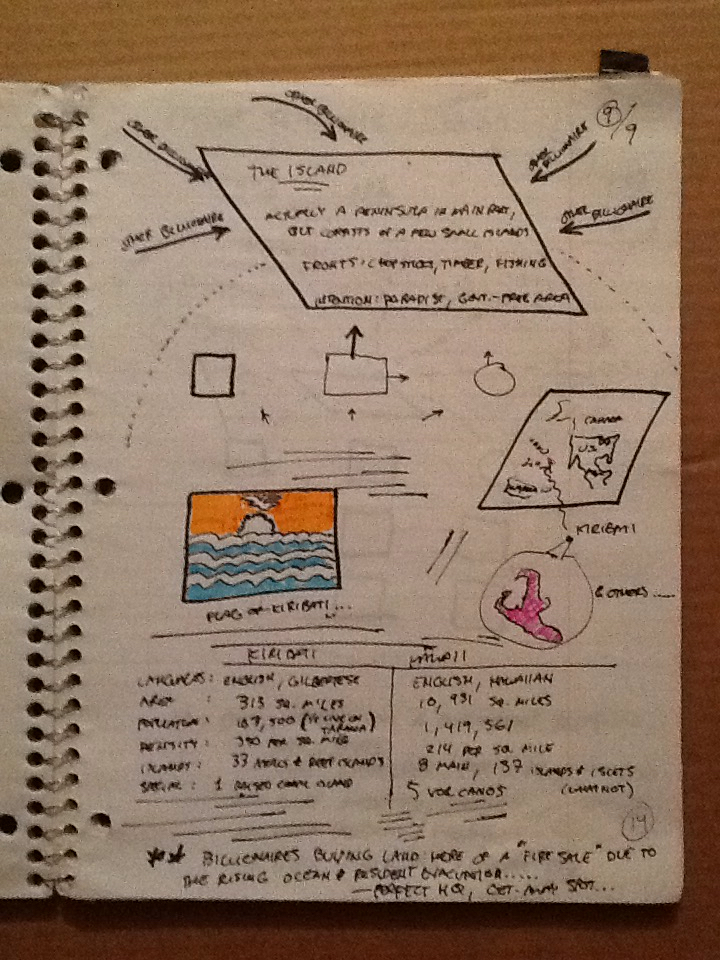 OTHER BILLIONAIRE
9/9
OTHER BILLIONAIRE
OTHER BILLIONAIRE
THE ISLAND
OTHER BILLIONAIRE
OTHER BILLIONAIRE
ACTUALLY A PENINSULA IN MAIN PART,
BUT CONSISTS OF A FEW SMALL ISLANDS
FRONTS: CHOPSTICKS, TIMBER, FISHING
INTENTION: PARADISE, GOVT.-FREE AREA
CANADA
US
KIRIBATI
& OTHERS.....
FLAG OF KIRIBATI...
KIRIBATI HAWAII
LANGUAGES: ENGLISH, GILBERTESE ENGLISH, HAWAIIAN
AREA : 313 SQ. MILES 10,931 SQ. MILES
POPULATION: 107,500 (1/2 LIVE ON TARAWA) 1,419,561
DENSITY: 350 PER SQ. MILE 214 PER SQ. MILE
ISLANDS: 33 ATOLLS & REEF ISLANDS 8 MAIN, 137 ISLANDS & ISLETS
SPECIAL: 1 RAISED CORAL ISLAND 5 VOLCANOS (WHAT NOT)
14
*** BILLIONAIRES BUYING LAND HERE OF A "FIRE SALE" DUE TO
THE RISING OCEAN & RESIDENT EVACUATION.....
— PERFECT HQ, GET-AWAY SPOT...